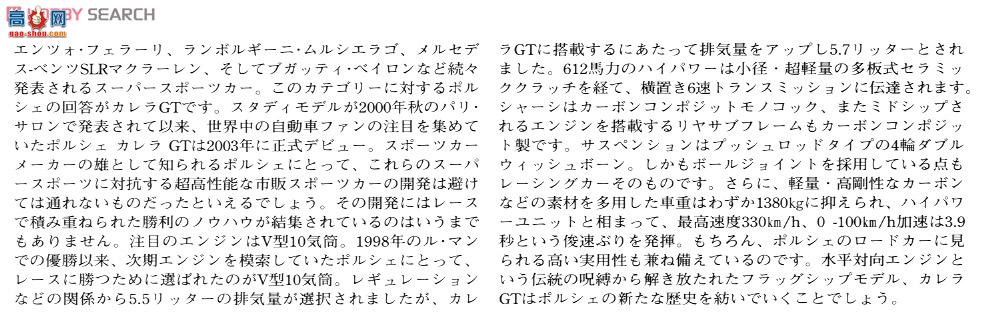 HOBBY SEARCH
高网
gao-shou.com
エンツォ・フェラーリ、ランボルギーニ・ムルシエラゴ、メルセデ
ス-ベンツSLRマクラーレン、そしてブガッティ・ベイロンなど続々
発表されるスーパースポーツカー。このカテゴリーに対するポル
シェの回答がカレラGTです。スタディモデルが2000年秋のパリ・
サロンで発表されて以来、世界中の自動車ファンの注目を集めて
いたポルシェ カレラ GTは2003年に正式デビュー。スポーツカー
メーカーの雄として知られるポルシェにとって、これらのスーパ
ースポーツに対抗する超高性能な市販スポーツカーの開発は避け
ては通れないものだったといえるでしょう。その開発にはレース
で積み重ねられた勝利のノウハウが結集されているのはいうまで
もありません。注目のエンジンはV型10気筒。1998年のル・マン
での優勝以来、次期エンジンを模索していたポルシェにとって、
レースに勝つために選ばれたのがV型10気筒。レギュレーション
などの関係から5.5リッターの排気量が選択されましたが、カレ
ラGTに搭載するにあたって排気量をアップし5.7リッターとされ
ました。612馬力のハイパワーは小径・超軽量の多板式セラミッ
ククラッチを経て、横置き6速トランスミッションに伝達されます。
シャーシはカーボンコンポジットモノコック、またミドシップさ
れるエンジンを搭載するリヤサブフレームもカーボンコンポジッ
ト製です。サスペンションはプッシュロッドタイプの4輪ダブル
ウィッシュボーン。しかもボールジョイントを採用している点も
レーシングカーそのものです。さらに、軽量・高剛性なカーボン
などの素材を多用した車重はわずか1380kgに抑えられ、ハイパワ
ーユニットと相まって、最高速度330km/h、0 -100km/h加速は3.9
秒という俊速ぶりを発揮。もちろん、ポルシェのロードカーに見
られる高い実用性も兼ね備えているのです。水平対向エンジンと
いう伝統の呪縛から解き放たれたフラッグシップモデル、カレラ
GTはポルシェの新たな歴史を紡いでいくことでしょう。